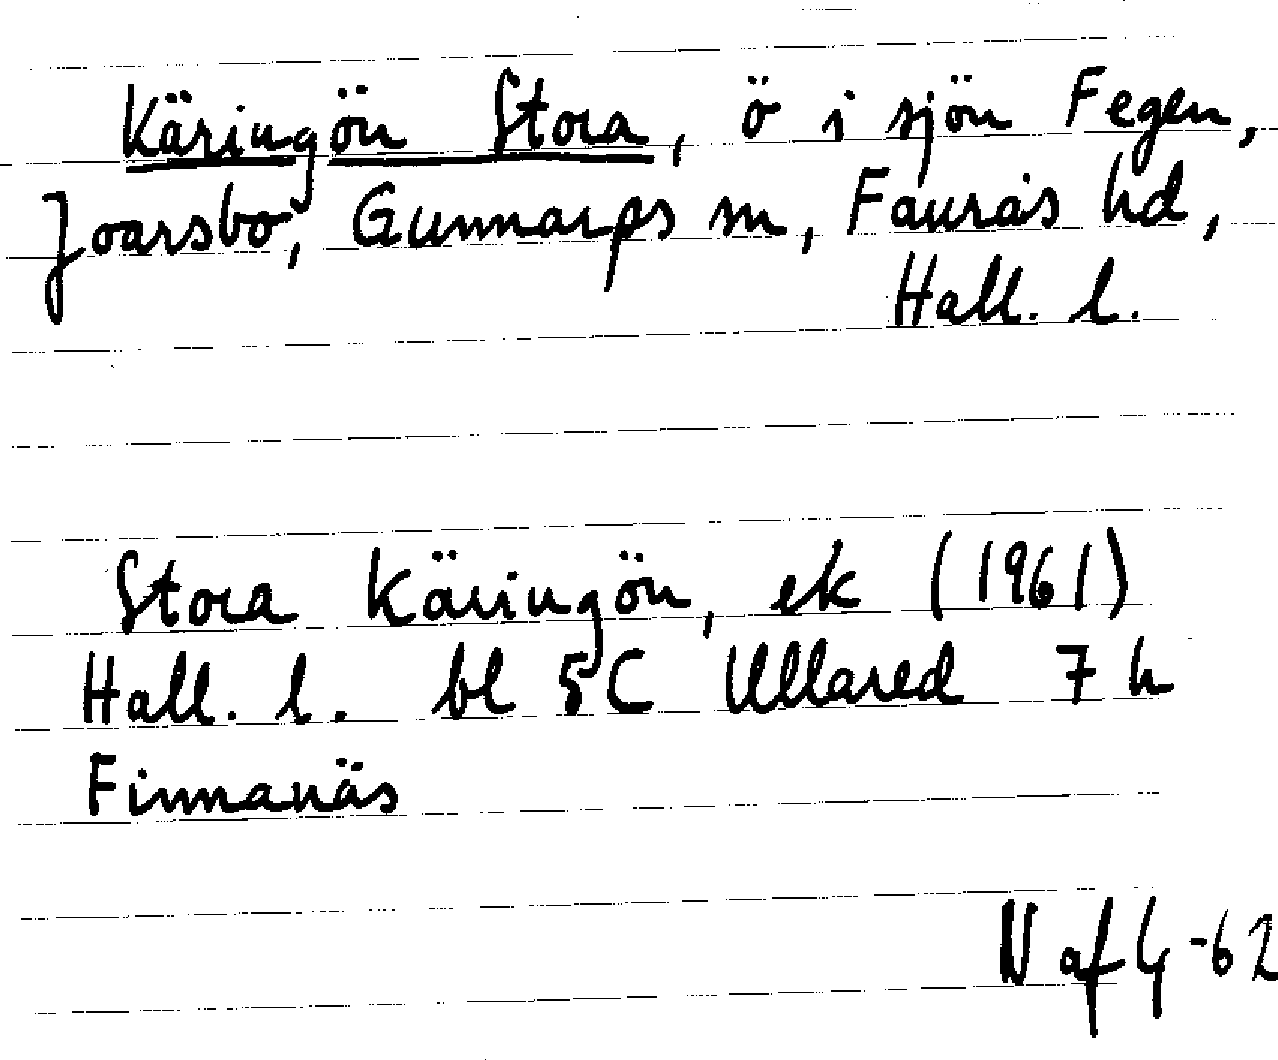 Käringön Stora, ö i sjön Fegen,
Joarsbo, Gunnarps sn, Faurås hd,
Hall. l.
Stora Käringön, ek (1961)
Hall. l. bl 5C Ullared 7 h
Finnanäs
N af G -62